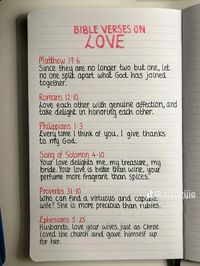 BIBLE VERSES ON
LOVE
Matthew 19:6
Since they are no longer two but one, let
no one split apart what God has joined
together.
Romans 12:10
Love each other with genuine affection, and
take delight in honoring each other.
Philippians 1:3
Every time I think of you, I give thanks
to my God.
Song of Solomon 4:10
Your love delights me, my treasure, my
bride. Your love is better than wine, your
perfume more fragrant than spices."
Proverbs 31:10
Who can find a virtuous and capable
wife? She is more precious than rubies.
Ephesians 5:25
Husbands, love your wives, just as Christ
loved the church and gave himself up
for her.